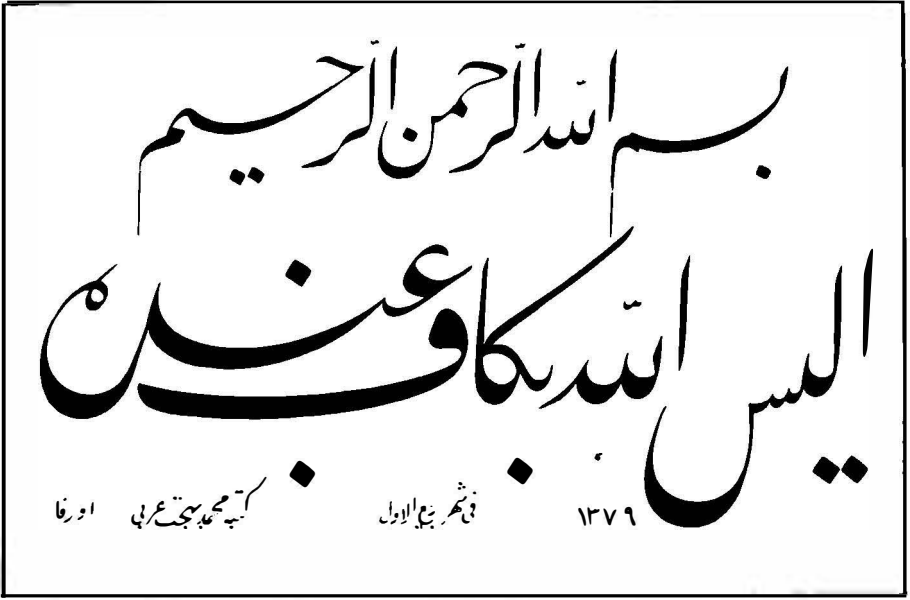 بسم الله الرحمن الرحيم
اليس الله بكاف عبده
١٣٧٩ في شهر ربيع الاول كتبه محمد بهجت عربي اورفا